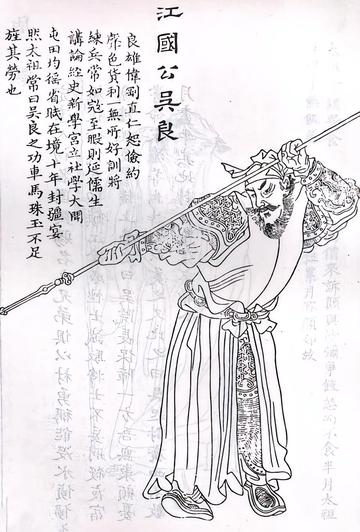 江國公吳良
良雄偉剛直仁恕儉約
聲色貨利一無所好訓將
練兵常如寇至暇則延儒生
講論經史新學宮立社學大開
屯田均徭省賦在境十年封疆宴
然太祖常曰吳良之功車馬珠玉不足
旌其勞也